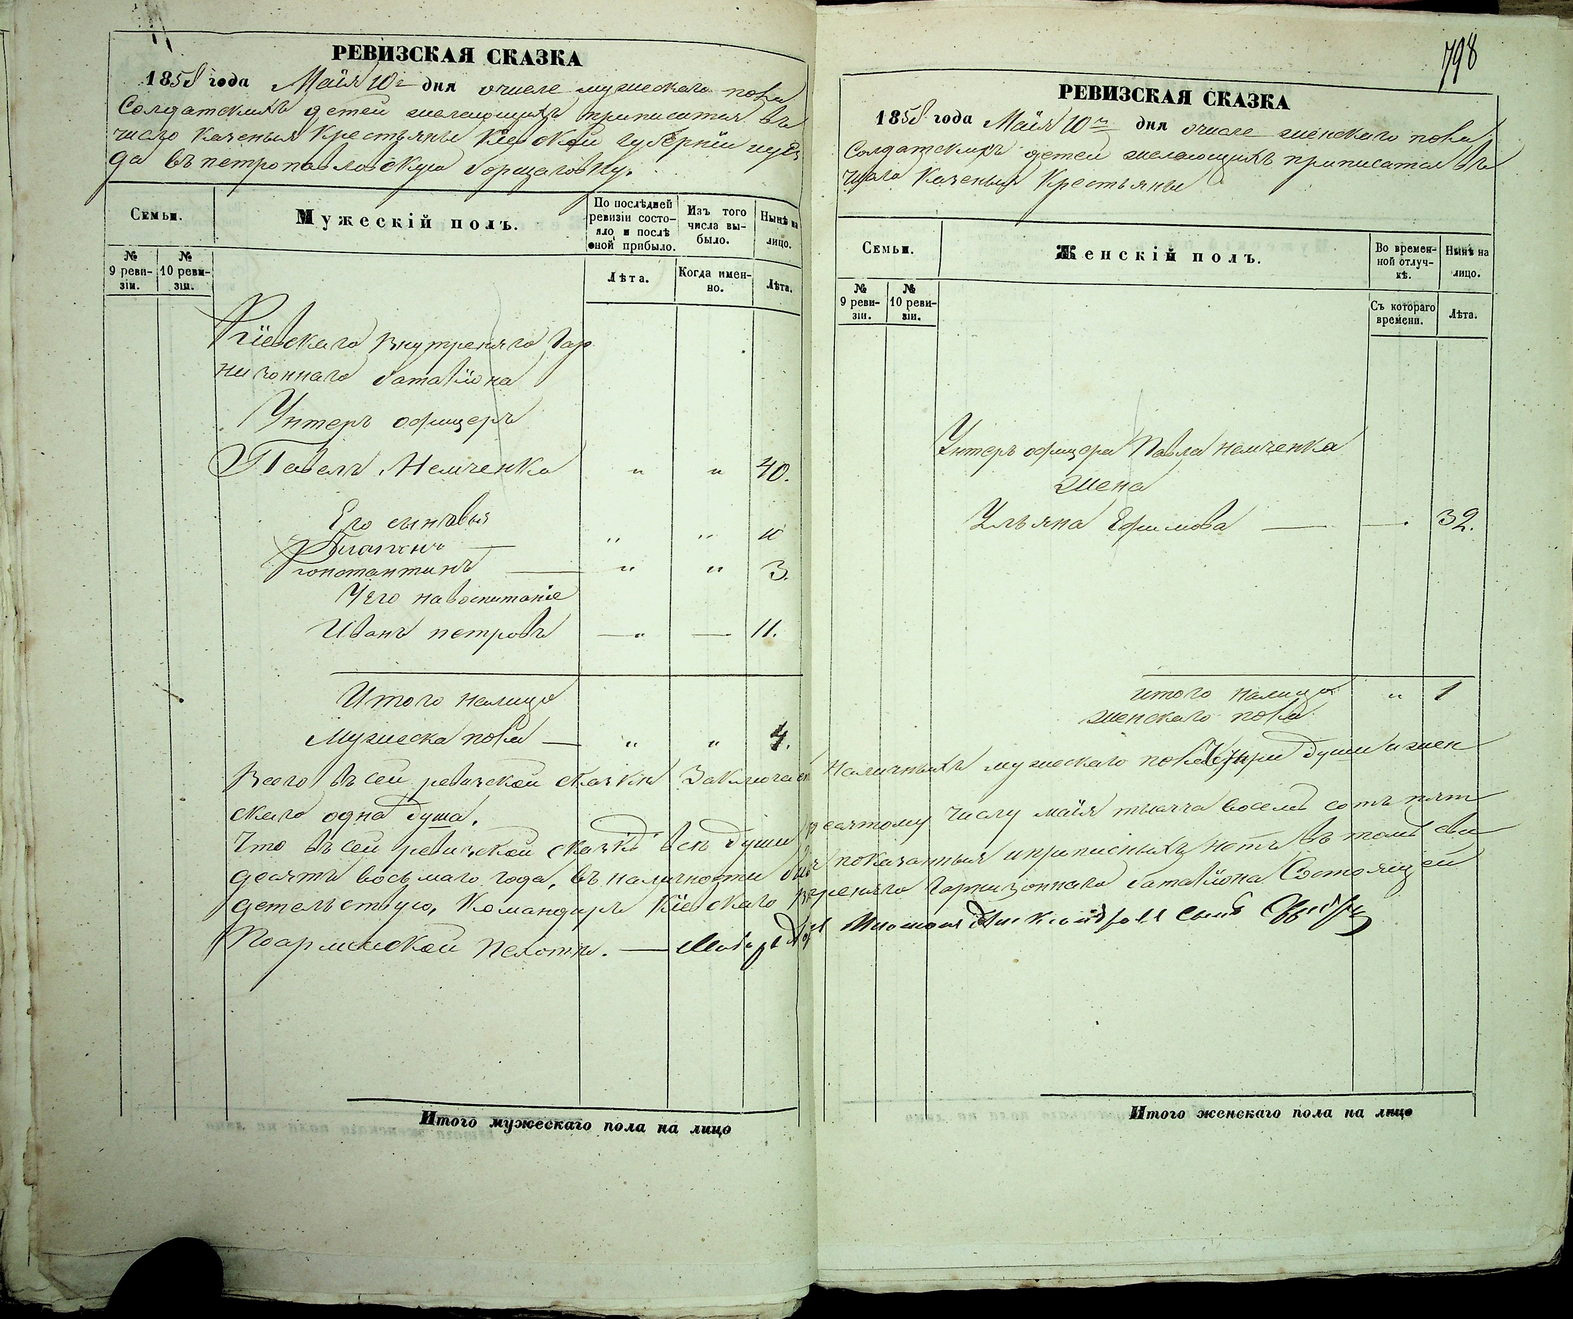 798
РЕВИЗСКАЯ СКАЗКА
1858 года Маія 10го дня о числе мужескаго пола
Солдатскихъ детей желающихъ приписатся въ
число казеныя Крестьяны Кіевской Губерніи иуез
да въ петропавловскую борщаговку.
Семьи.
Мужескій полъ.
По послѣдней ревизіи состояло и послѣ оной прибыло.
Изъ того числа выбыло.
Нынѣ на лицо.
№ 9 ревизіи.
№ 10 ревизіи.
Лѣта.
Когда именно.
Лѣта.
Кіевскаго внутреняго Гар
низоннаго баталіона
Унтеръ офицеръ
Павелъ Немченко " " 40.
Его сыновья
" " 10
Константинъ — " " 3.
У его на воспитаніе
Иванъ петровъ — " — 11.
Итого налицо
Мужеска пола — " " 4.
РЕВИЗСКАЯ СКАЗКА
1858 года Маія 10го дня о числе женскаго пола
Солдатскихъ детей желающихъ приписатся въ
число Казеныя Крестьяны
Семьи.
Женскій полъ.
Во временной отлучкѣ.
Нынѣ на лицо.
№ 9 ревизіи.
№ 10 ревизіи.
Съ котораго времени.
Лѣта.
Унтеръ офицера Павла Немченка
жена
Ульяна Ефимова — — . 32.
итого налицо " 1
женскаго пола
Всего въ сей ревизской сказки Заключается Наличныхъ мужескаго пола четыри души и жен
скаго одна душа.
Что въ сей ревизской сказкѣ всѣ души десятому числу маія тысяча восемь сотъ пят
десятъ восьмаго года, въ наличности показанныя и прописныхъ нѣтъ въ томъ сви
детельствую, Командиръ Кіевскаго внутреняго Гарнизоннаго баталіона Состоящей
По армейской пехотѣ. —
Итого мужескаго пола на лицо
Итого женскаго пола на лицо